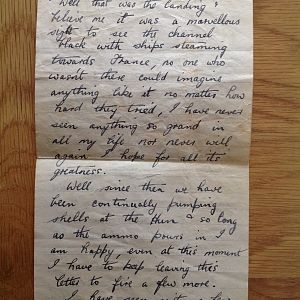 Well that was the landing &
believe me it was a marvellous
sight to see the channel
black with ships steaming
towards France, no one who
wasnt there could imagine
anything like it no matter how
hard they tried, I have never
seen anything so grand in
all my life nor never will
again I hope for all its
greatness.
Well since then we have
been continually pumping
shells at the Hun & so long
as the ammo pours in I
am happy, even at this moment
I have to keep leaving this
letter to fire a few more.
I have seen